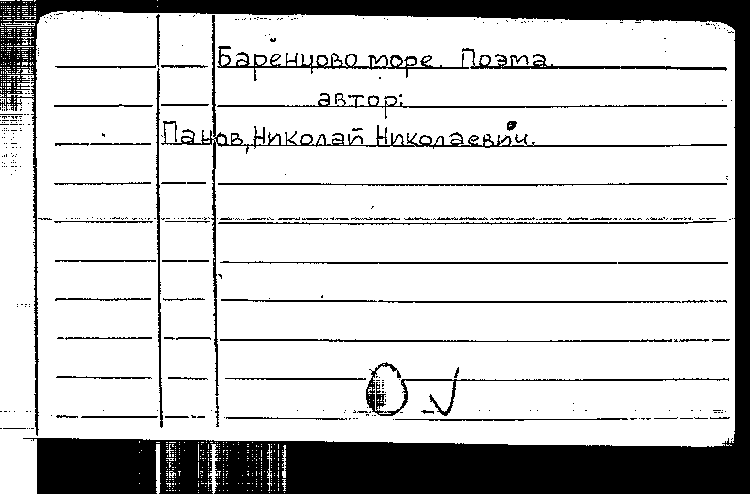 Баренцово море. Поэма.
автор:
Панов, Николай Николаевич.